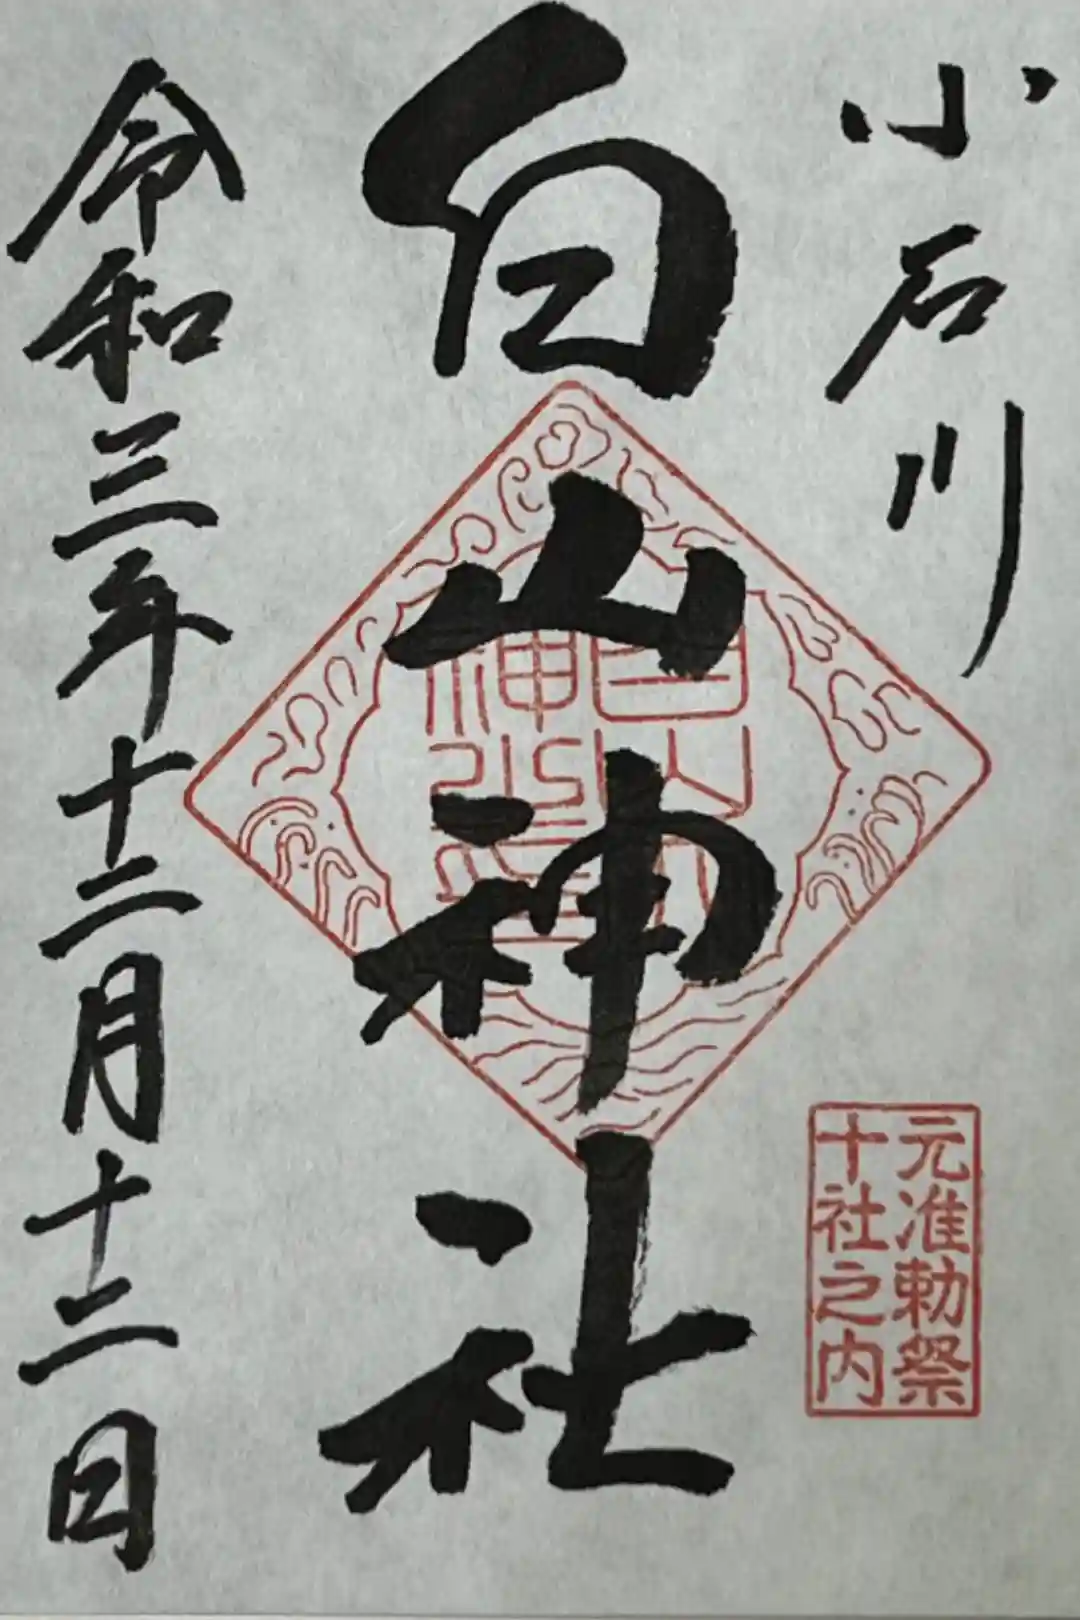 小石川
白山神社
令和三年十二月十二日
元准勅祭
十社之内